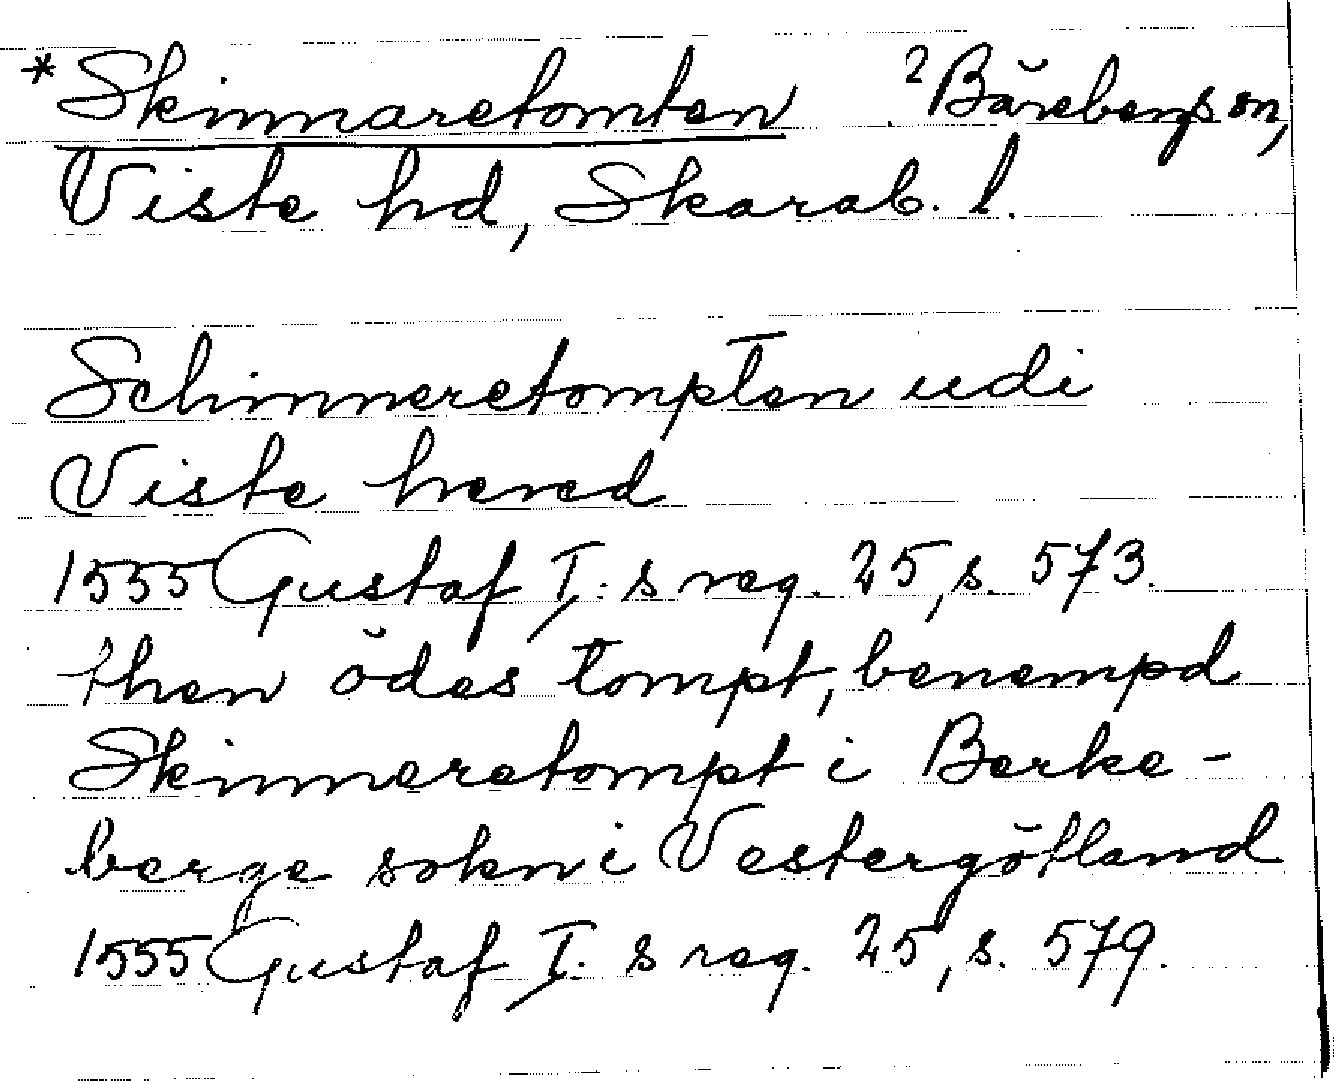 *Skinnaretomten ?Bärebergs sn,
Viste hd, Skarab. l.
Schinneretompten udi
Viste hered
1555 Gustaf I:s reg. 25, s. 573.
then ödes tompt, benempd
Skinneretompt i Berke-
berge sokn i Vestergötland
1555 Gustaf I:s reg. 25, s. 579.